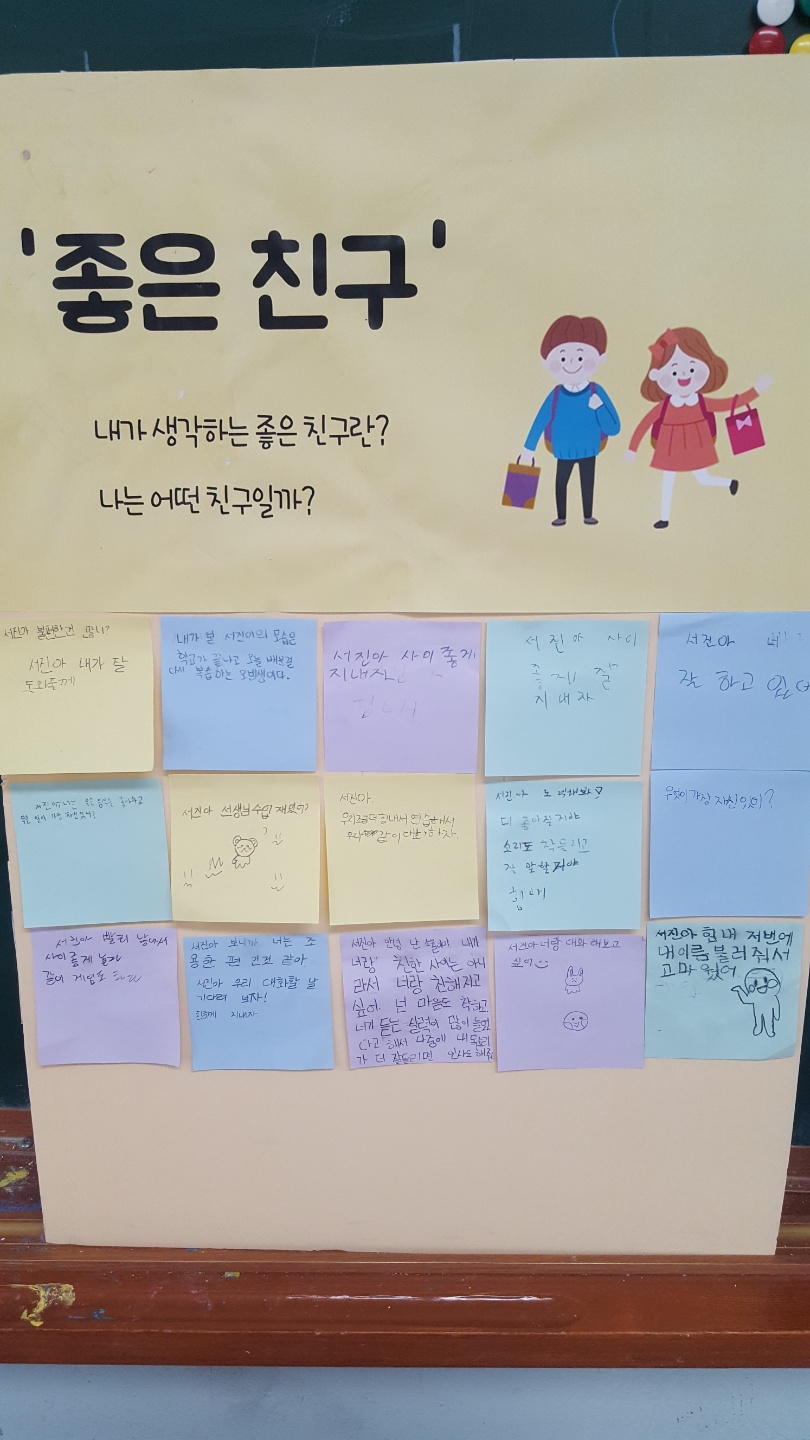 '좋은 친구'
내가 생각하는 좋은 친구란?
나는 어떤 친구일까?
서진아 불편한건 없니?
서진아 내가 잘
도와줄게
내가 본 서진이의 모습은
학교가 끝나고 오늘 배운걸
다시 복습하는 모범생이다.
서진아 사이 좋게
지내자
힘내
서진아 사이
좋게 잘
지내자
서진아
잘 하고 있어
서진아 선생님 수업 재밌어?
서진아.
우리 조금 더 힘내서 연습해서
같이 대화 하자.
서진아 노력해봐!
더 좋아질거야
소리도 잘 들리고
잘 말할거야
힘내
무엇이 가장 자신있어?
서진아 빨리 나아서
사이좋게 놀자
같이 게임도
서진아 보니까 너는 조
용한 편 인것 같아
서진아 우리 대화할 날
기다려 보자!
친하게 지내자
서진아 안녕 난 내가
너랑 친한 사이는 아니
라서 너랑 친해지고
싶어. 넌 마음도 착하고,
너가 듣는 실력이 많이 늘었
다고 해서 나중에 내 목소리
가 더 잘들리면 인사도 해줘
서진아 너랑 대화 해보고
싶어
서진아 힘내 저번에
내 이름 불러 줘서
고마웠어